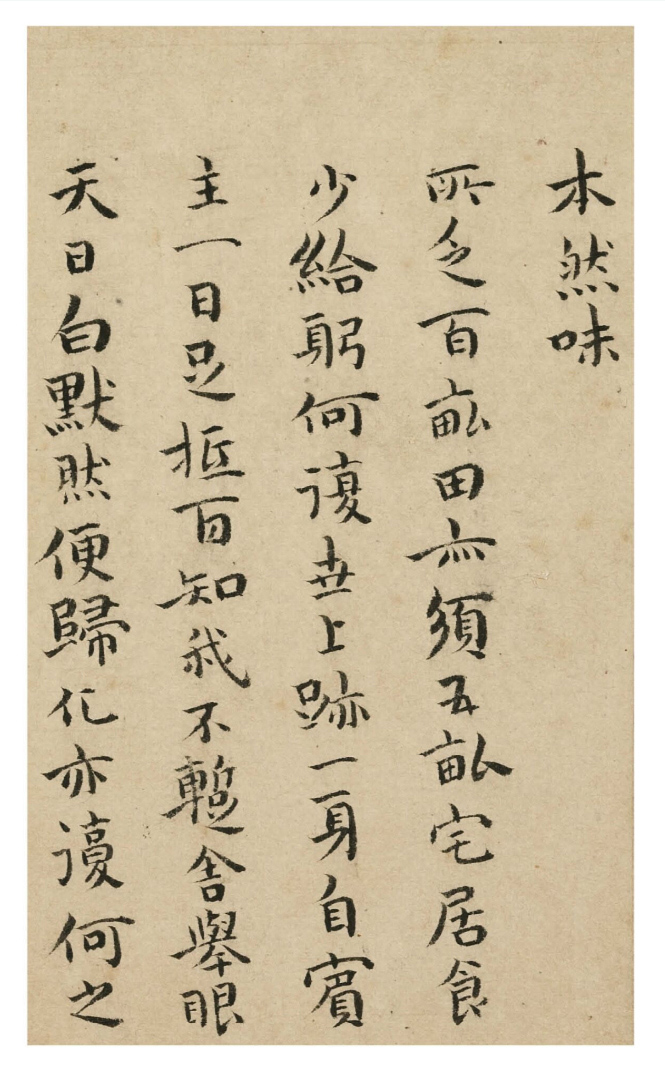 本然味
所乏百畝田亦須五畝宅居食
少給躬何復世上跡一身自賓
主一日足抵百知我不暫舍舉眼
天日白默然便歸化亦復何之